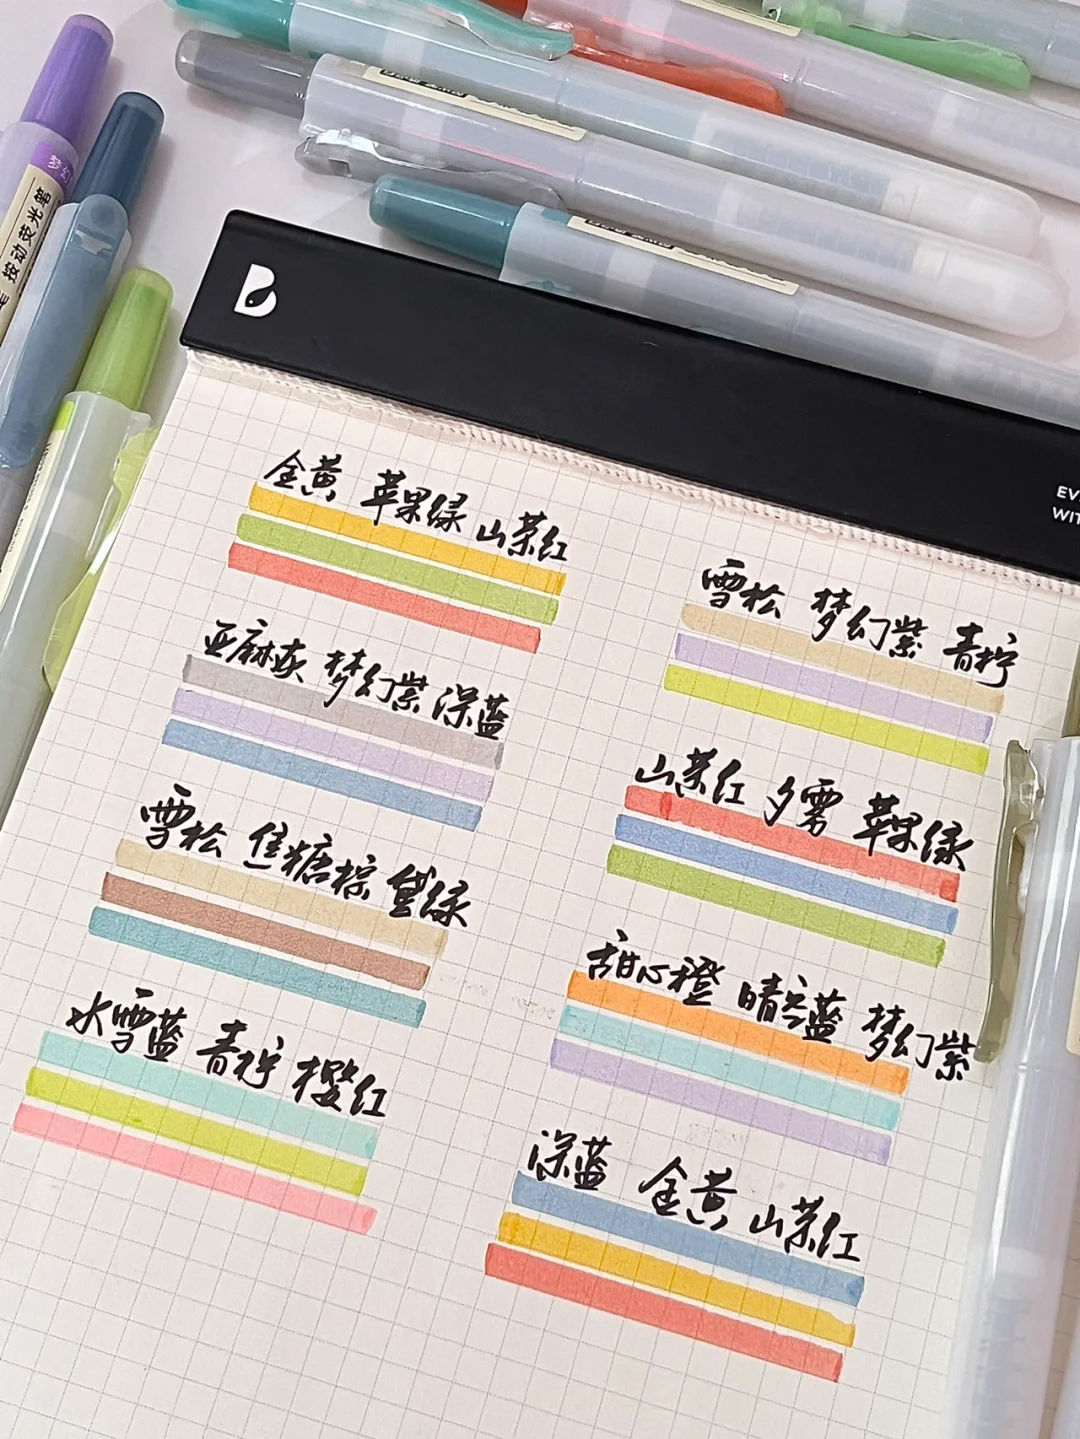 梦幻
按动荧光笔
B
EV
WIT
金黄 苹果绿 山茶红
亚麻灰 梦幻紫 深蓝
雪松 焦糖棕 黛绿
冰雪蓝 青柠 樱红
雪松 梦幻紫 青柠
山茶红 夕雾 苹果绿
甜心橙 晴空蓝 梦幻紫
深蓝 金黄 山茶红